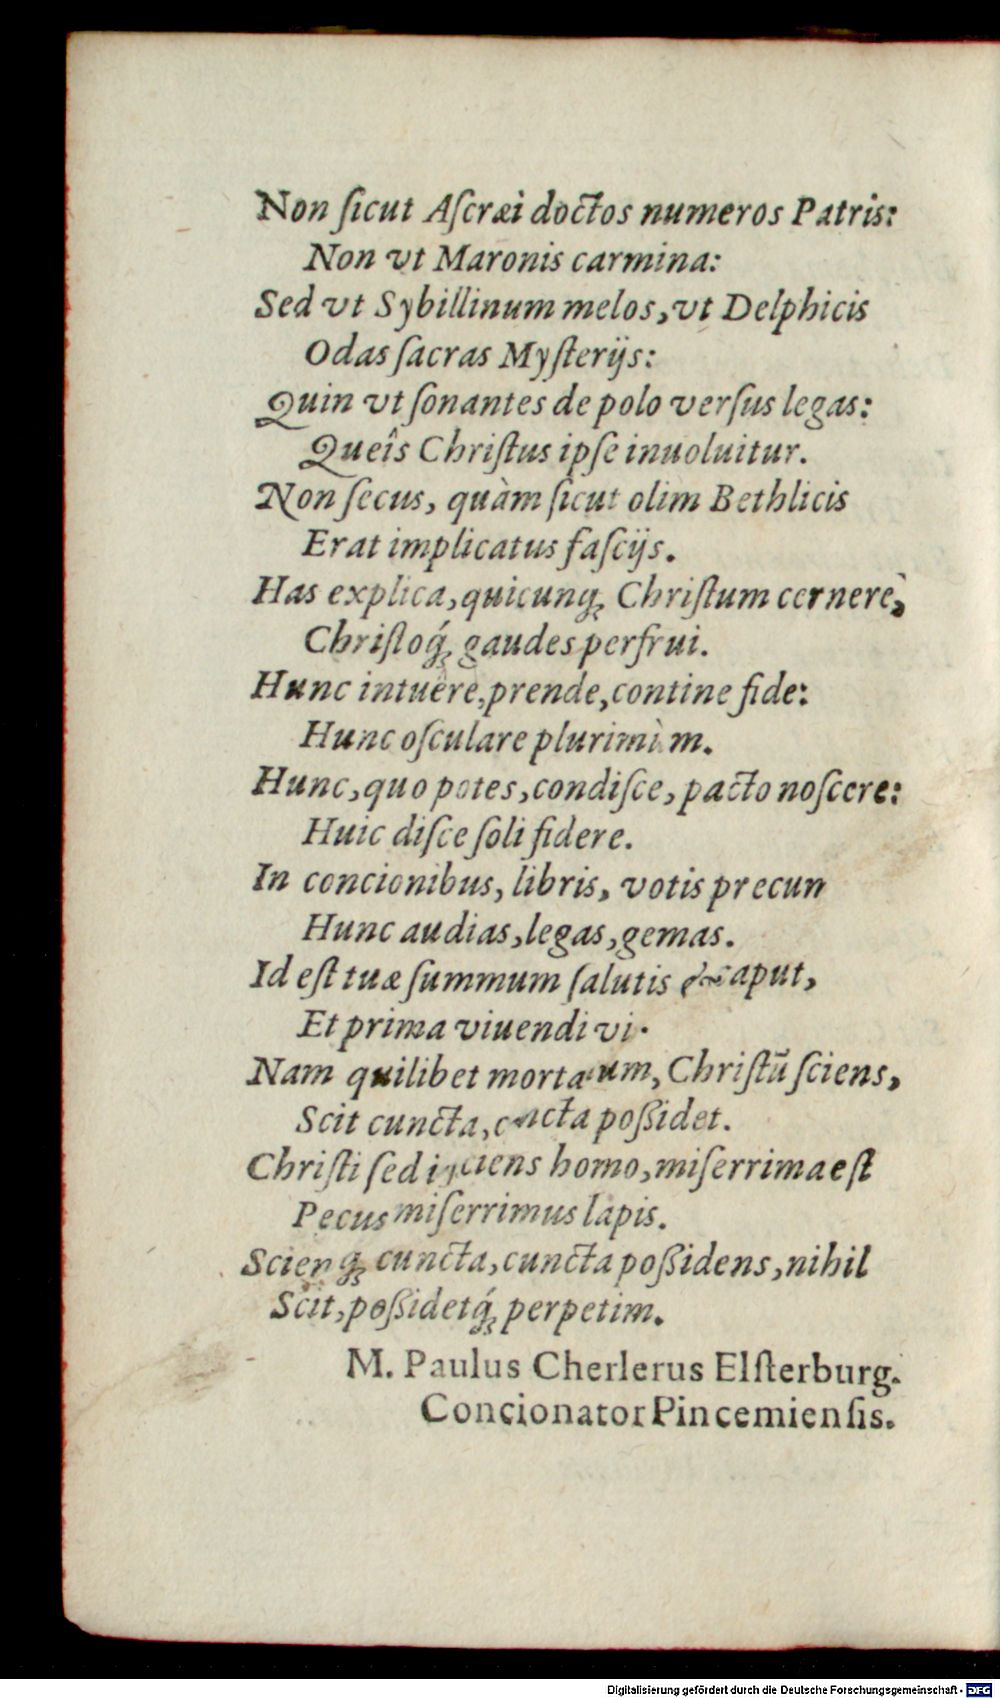 Non ſicut Aſcræi doctos numeros Patris:
Non vt Maronis carmina:
Sed vt Sybillinum melos, vt Delphicis
Odas ſacras Myſterijs:
Quin vt ſonantes de polo verſus legas:
Queîs Chriſtus ipſe inuoluitur.
Non ſecus, quàm ſicut olim Bethlicis
Erat implicatus faſcijs.
Has explica, quicunq; Chriſtum cernere,
Chriſtoq́; gaudes perfrui.
Hunc intuêre, prende, contine fide:
Hunc oſculare plurimùm.
Hunc, quo potes, condiſce, pacto noſcere:
Huic diſce ſoli fidere.
In concionibus, libris, votis precum
Hunc audias, legas, gemas.
Id eſt tuæ ſummum ſalutis & caput,
Et prima viuendi
Nam quilibet Chriſtū ſciens,
Scit cuncta, cuncta poßidet.
Chriſti ſed inſciens homo, miſerrima eſt
Pecus miſerrimus lapis.
Scienq; cuncta, cuncta poßidens, nihil
Scit, poßidetq́; perpetim.
M. Paulus Cherlerus Elſterburg.
Concionator Pincemienſis.
Digitalisierung gefördert durch die Deutsche Forschungsgemeinschaft - DFG